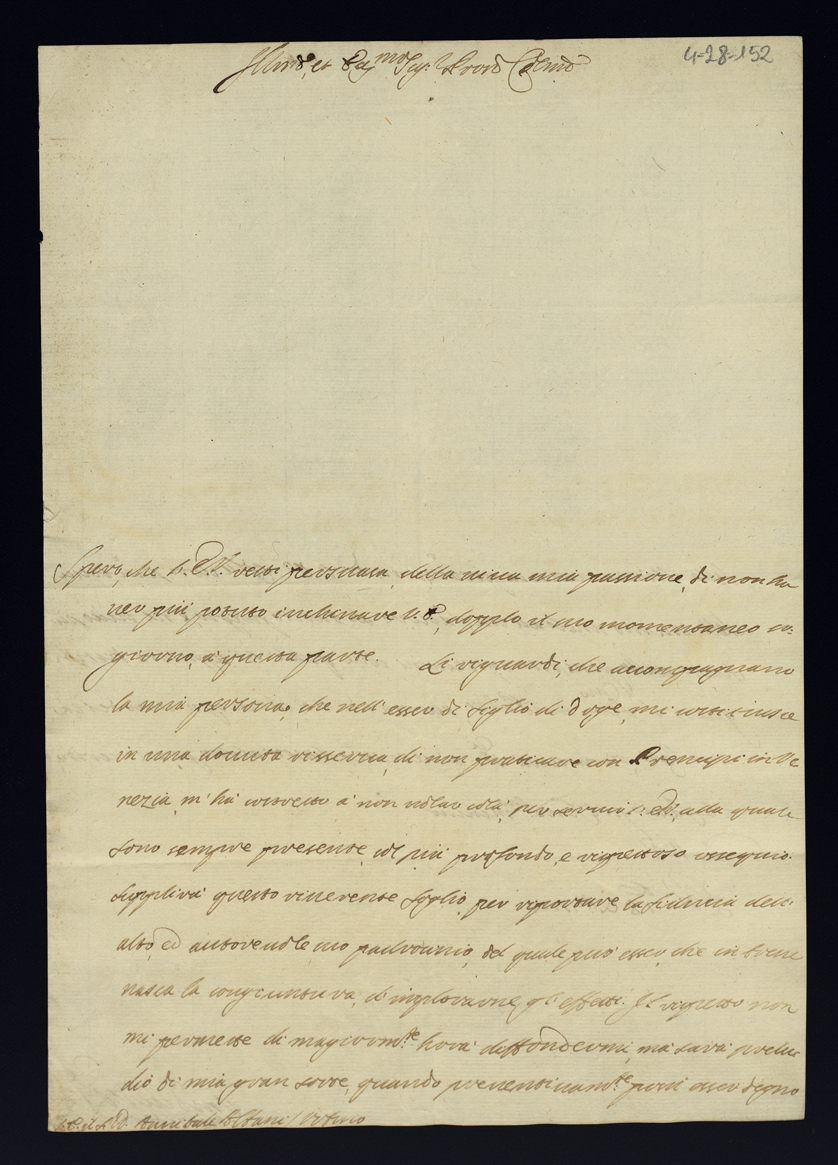 4-28-152
Illmo, et Ecc.mo Sig.r Prone Colmo
Spero, che V. E. resti persuasa della viva mia passione, di non ha
ver più potuto inchinare V. E., doppo il suo momentaneo so-
giorno, a questa parte. Li riguardi, che accompagnano
la mia persona, che nell'esser di figlio di Doge, mi costituisce
in una dovuta risserva, di non praticare con Prencipi in Ve
nezia, m'hà costretto à non volar colà, per servir V. E., alla quale
sono sempre presente, col più profondo, e rispettoso ossequio.
Supplirà questo riverente foglio, per riportare la fiducia dell'
alto, ed autorevole suo padrocinio, del quale può esser, che in breve
nasca la congiuntura, d'implorarne gl'effetti. Il rispetto non
mi permette di magiorm.te hora diffondermi, ma sarà prelu
dio di mia gran sorte, quando preventivam.te possi esser degno
Annibale Albani / Urbino